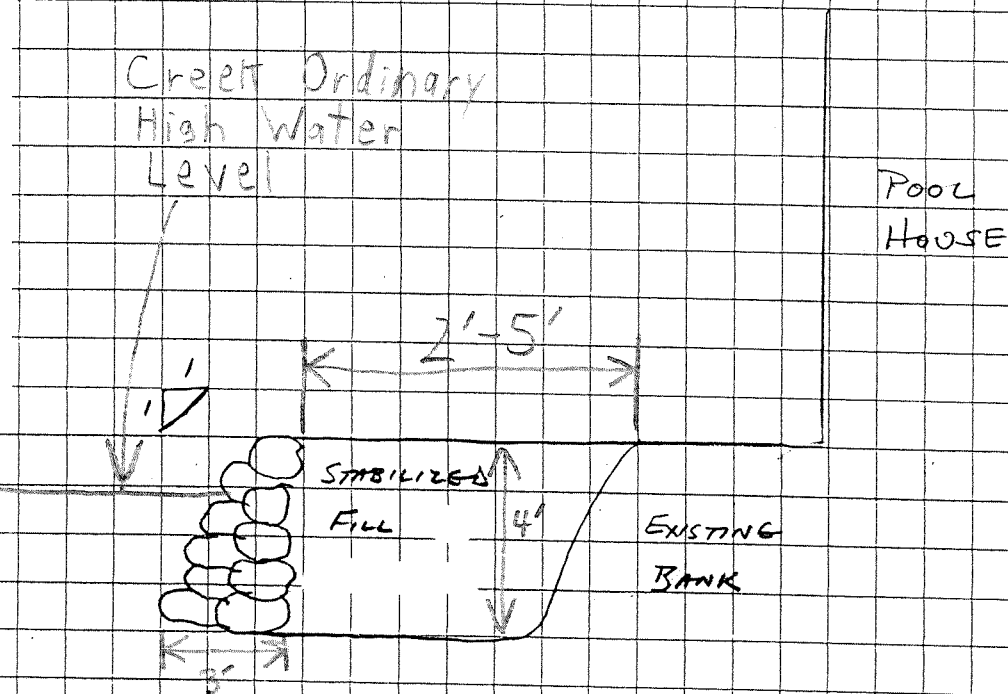 Creek Ordinary
High Water
Level
POOL
HOUSE
2'-5'
1
1
STABILIZED
FILL
4'
EXISTING
BANK
3'